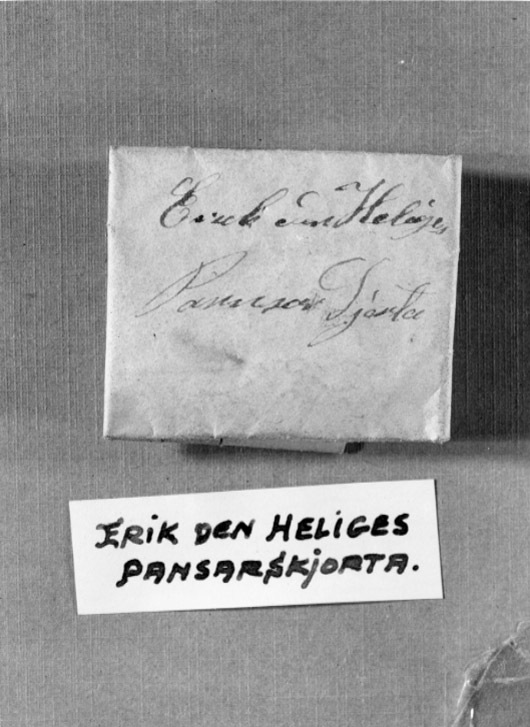 Erick den Heliges
Pansar Tjorta
ERIK DEN HELIGES
PANSARSKJORTA.